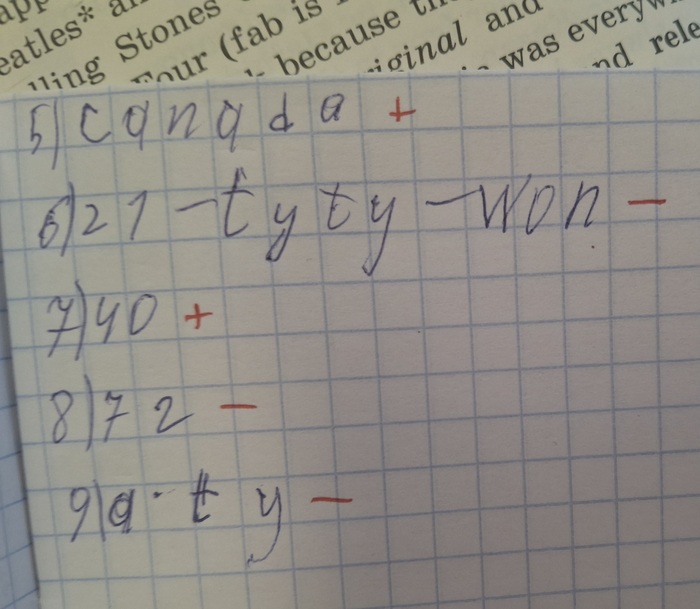 app
eatles* a
lling Stones
Four (fab is
because th
original and
was everyw
nd rele
5) Canada +
6) 21 - tyty - won -
7) 40 +
8) 72 -
9) a · ty -